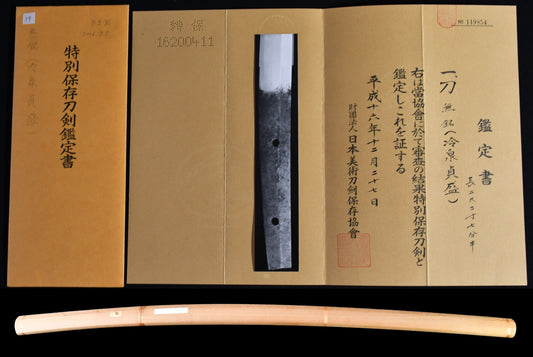 特別保存刀剣鑑定書
特保
16200411
№ 149854
鑑定書
一、刀 無銘(冷泉貞盛)
長二尺二寸七分半
右は當協會に於て審査の結果特別保存刀剣と
鑑定しこれを証する
平成十六年十二月二十七日
財團法人日本美術刀剣保存協會